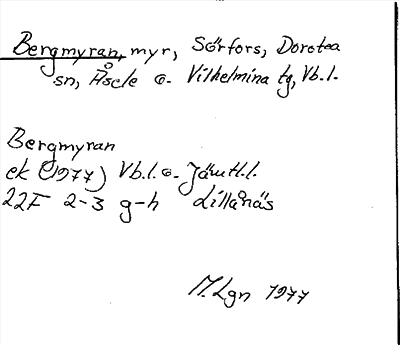 Bergmyran, myr, Sörfors, Dorotea
sn, Åsele o. Vilhelmina tg, Vb.l.
Bergmyran
ek (1977) Vb.l. o. Jämtl.l.
22F 2-3 g-h Lillånäs
M. Lgn 1977